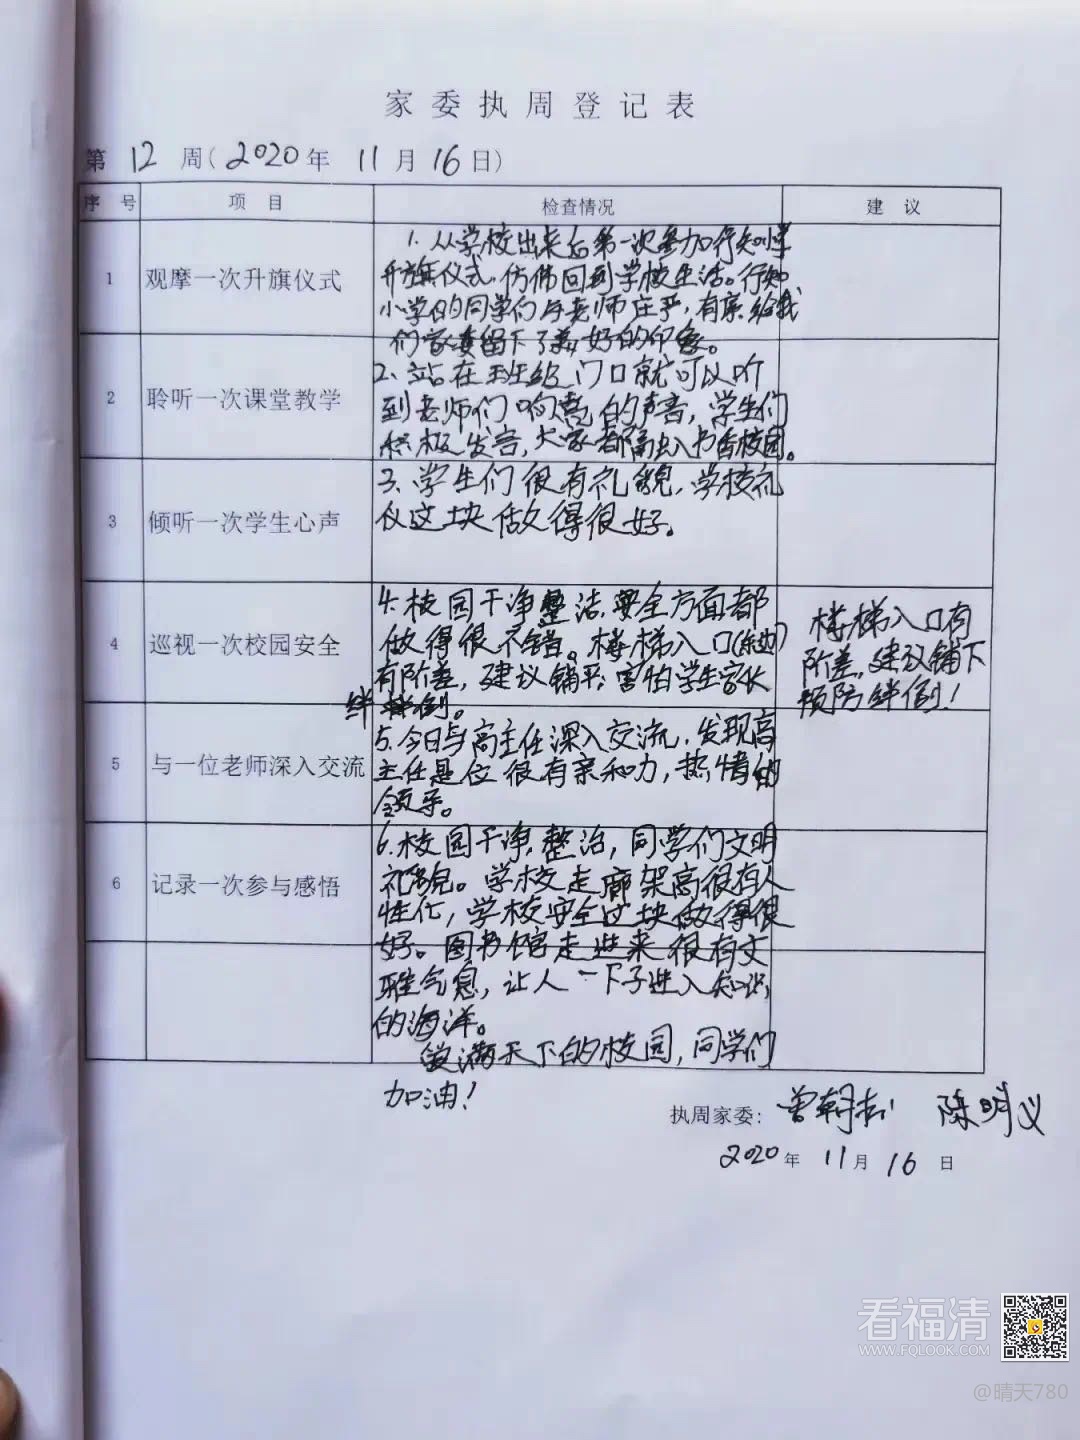 家委执周登记表
第 12 周(2020年 11月16日)
序号 项目 检查情况 建议
1 观摩一次升旗仪式
1. 从学校出来后第一次参加行知小学
升旗仪式,仿佛回到学校生活。行知
小学的同学们与老师庄严,有序,给我
们家委留下了美好的印象。
2 聆听一次课堂教学
2. 站在班级门口就可以听
到老师们响亮的声音,学生们
积极发言,大家都融入书香校园。
3 倾听一次学生心声
3. 学生们很有礼貌,学校礼
仪这块做得很好。
4 巡视一次校园安全
4. 校园干净整洁,安全方面都
做得很不错。楼梯入口(东边)
有阶差,建议铺平;害怕学生家长
绊倒。
楼梯入口有
阶差,建议铺下
预防绊倒!
5 与一位老师深入交流
5. 今日与高主任深入交流,发现高
主任是位很有亲和力,热情的
领导。
6 记录一次参与感悟
6. 校园干净,整洁,同学们文明
礼貌。学校走廊架高很有人
性化,学校安全这块做得很
好。图书馆走进来很有文
雅气息,让人一下子进入知识
的海洋。
满天下的校园,同学们
加油!
执周家委: 陈明义
2020年 11月 16 日
看福清
WWW.FQLOOK.COM
@晴天780